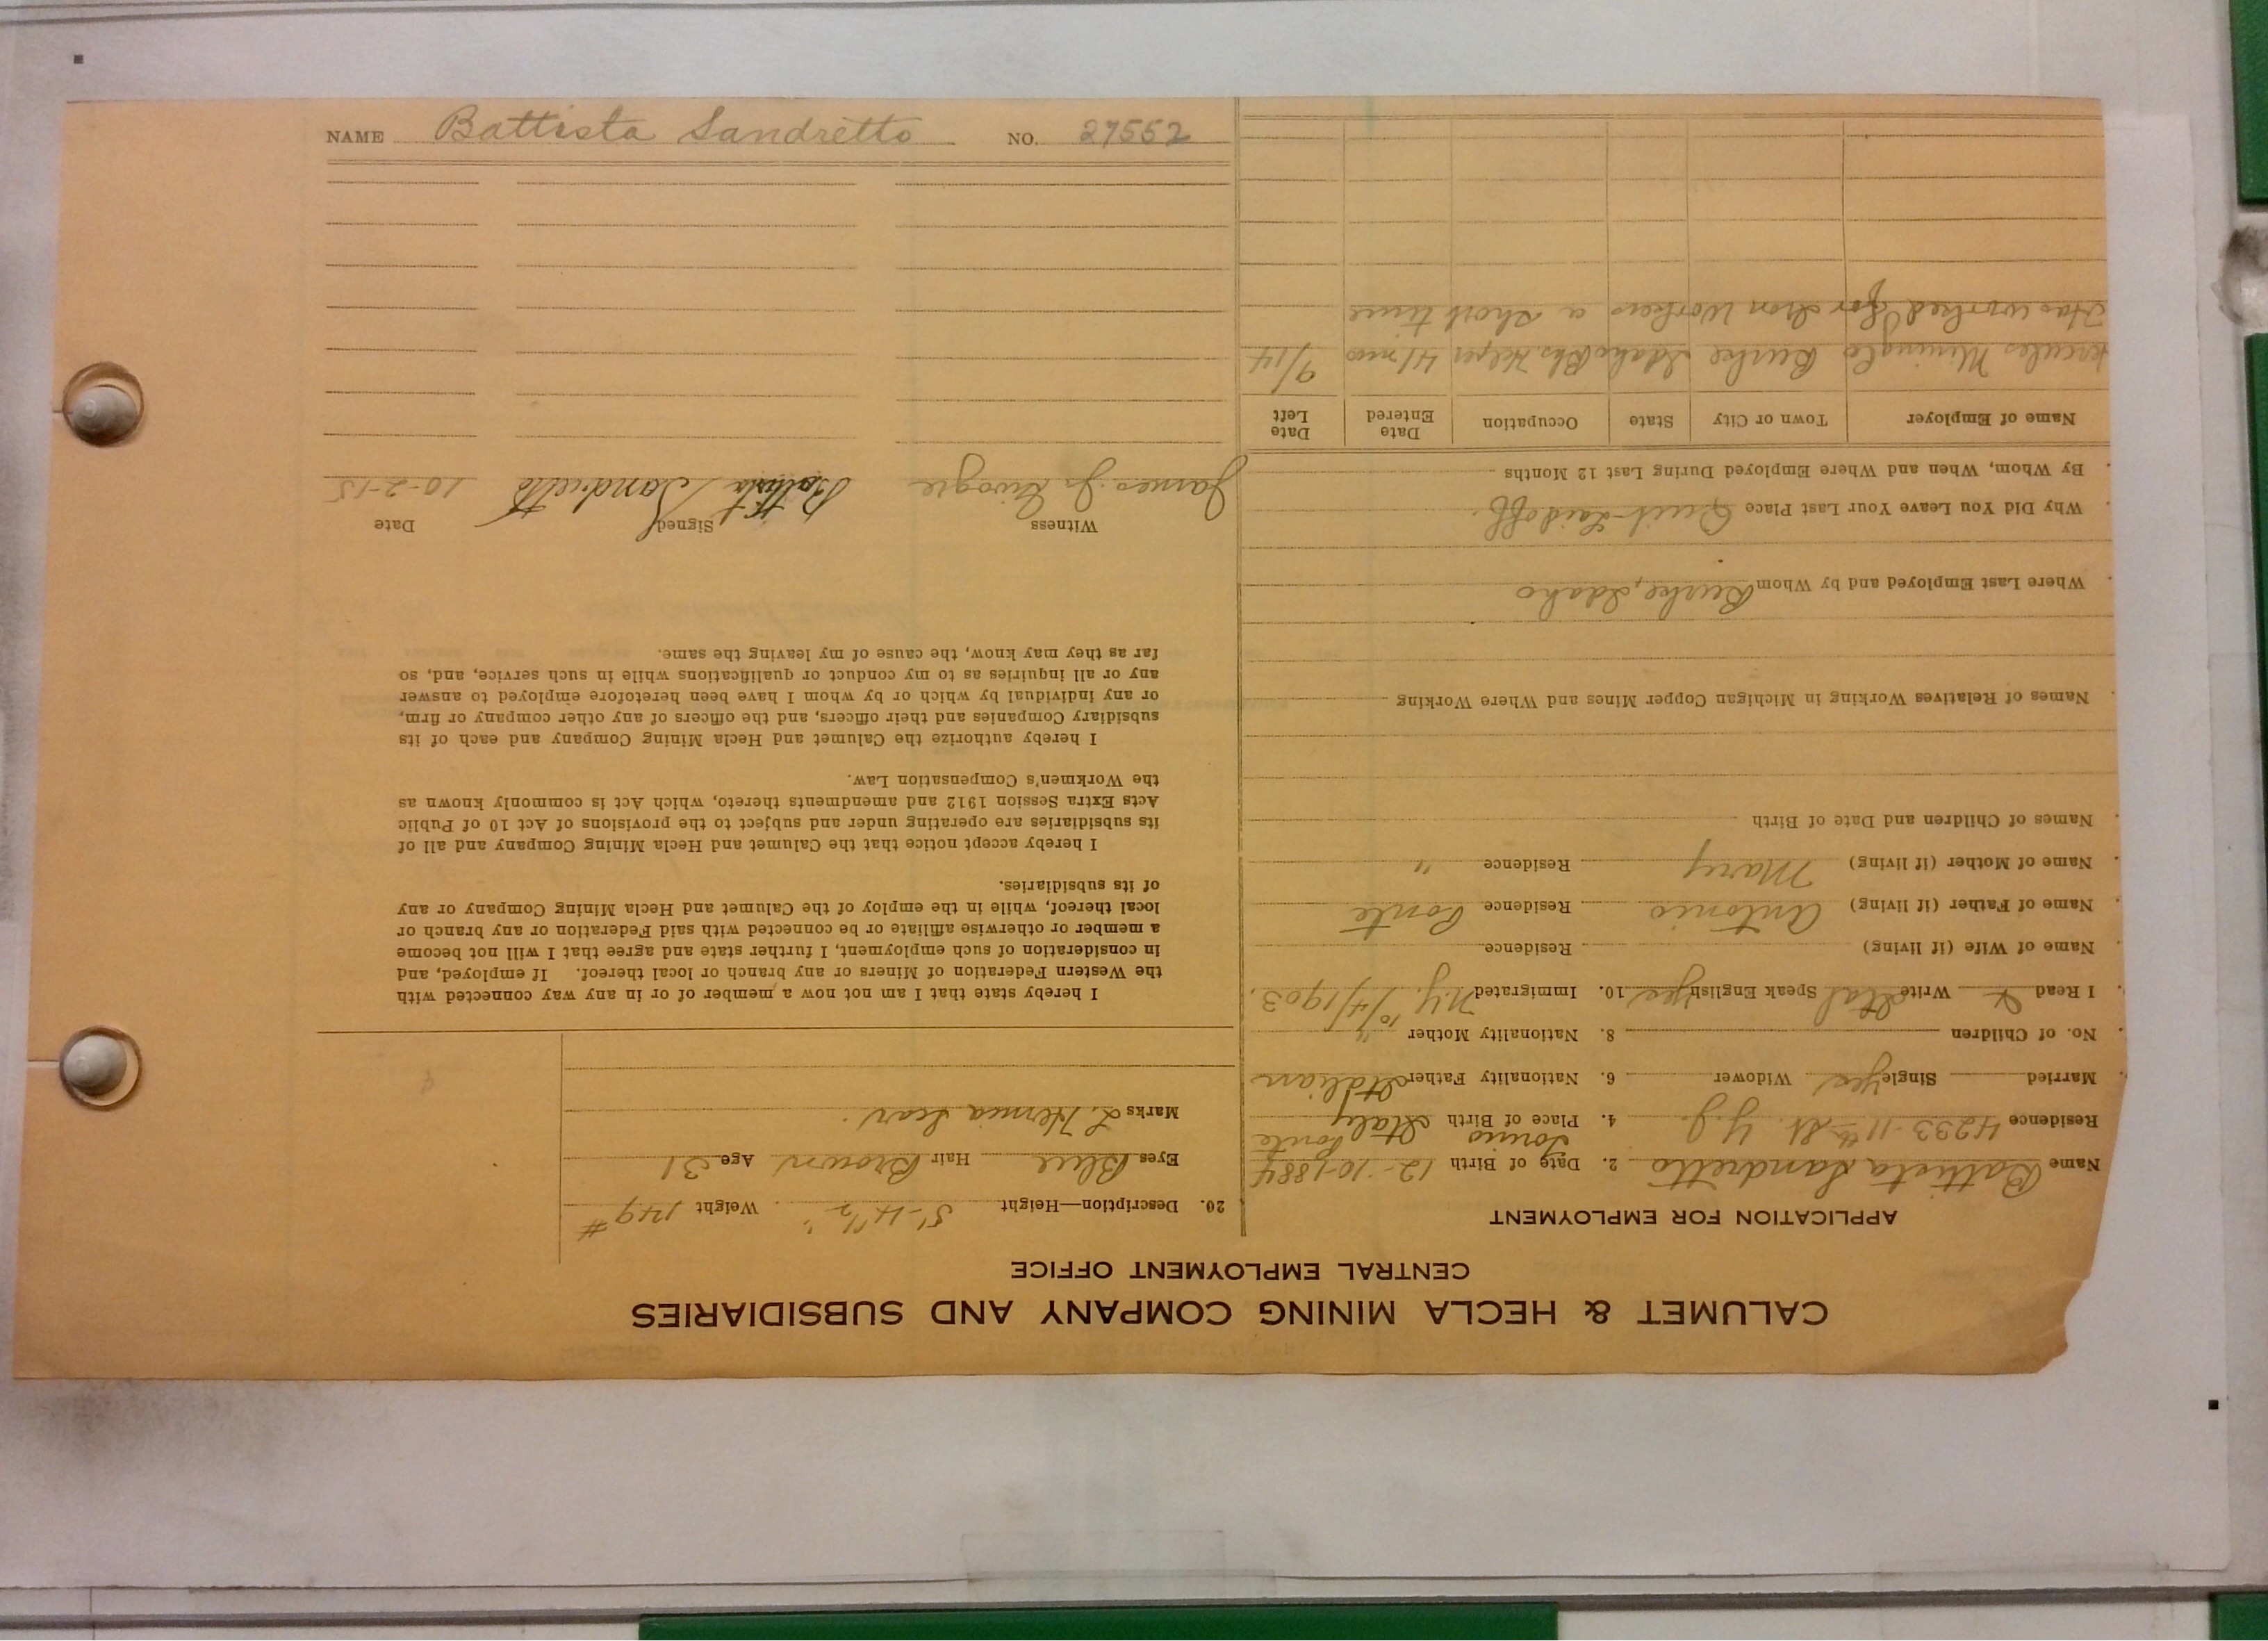 NAME Battista Sandretto NO. 27552
CALUMET & HECLA MINING COMPANY AND SUBSIDIARIES
CENTRAL EMPLOYMENT OFFICE
APPLICATION FOR EMPLOYMENT
Name Battista Sandretto 2. Date of Birth 12-10-1884
Residence 4233-11th St. Y.J. 4. Place of Birth Italy Ponte
Married Single Yes Widower 6. Nationality Father Italian
No. of Children 8. Nationality Mother "
I Read & Write Ital Speak English Yes 10. Immigrated N.Y. 10/4/1903.
Name of Wife (if living) Residence
Name of Father (if living) Antonio Residence Ponte
Name of Mother (if living) Mary Residence "
Names of Children and Date of Birth
Names of Relatives Working in Michigan Copper Mines and Where Working
Where Last Employed and by Whom Burke, Idaho
Why Did You Leave Your Last Place Quit-Laid off.
By Whom, When and Where Employed During Last 12 Months
Name of Employer Town or City State Occupation Date Entered Date Left
Hercules Mining Co Burke Idaho Bks. Helper 4 1 mos 9/14
Has worked for Iron Workers a short time
20. Description—Height 5'-4 1/2" Weight 149#
Eyes Blue Hair Brown Age 31
Marks L. Hernia Scar.
I hereby state that I am not now a member of or in any way connected with
the Western Federation of Miners or any branch or local thereof. If employed, and
in consideration of such employment, I further state and agree that I will not become
a member or otherwise affiliate or be connected with said Federation or any branch or
local thereof, while in the employ of the Calumet and Hecla Mining Company or any
of its subsidiaries.
I hereby accept notice that the Calumet and Hecla Mining Company and all of
its subsidiaries are operating under and subject to the provisions of Act 10 of Public
Acts Extra Session 1912 and amendments thereto, which Act is commonly known as
the Workmen's Compensation Law.
I hereby authorize the Calumet and Hecla Mining Company and each of its
subsidiary Companies and their officers, and the officers of any other company or firm,
or any individual by which or by whom I have been heretofore employed to answer
any or all inquiries as to my conduct or qualifications while in such service, and, so
far as they may know, the cause of my leaving the same.
Witness Signed Date
James Battista Sandretto 10-2-15